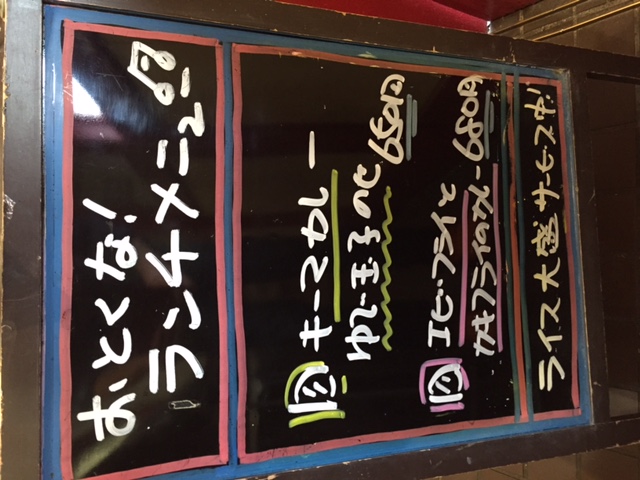 おとくな!
ランチメニュー
キーマカレー
ゆで玉子のせ
650円
エビフライと
カキフライのカレー
680円
ライス大盛サービス中!